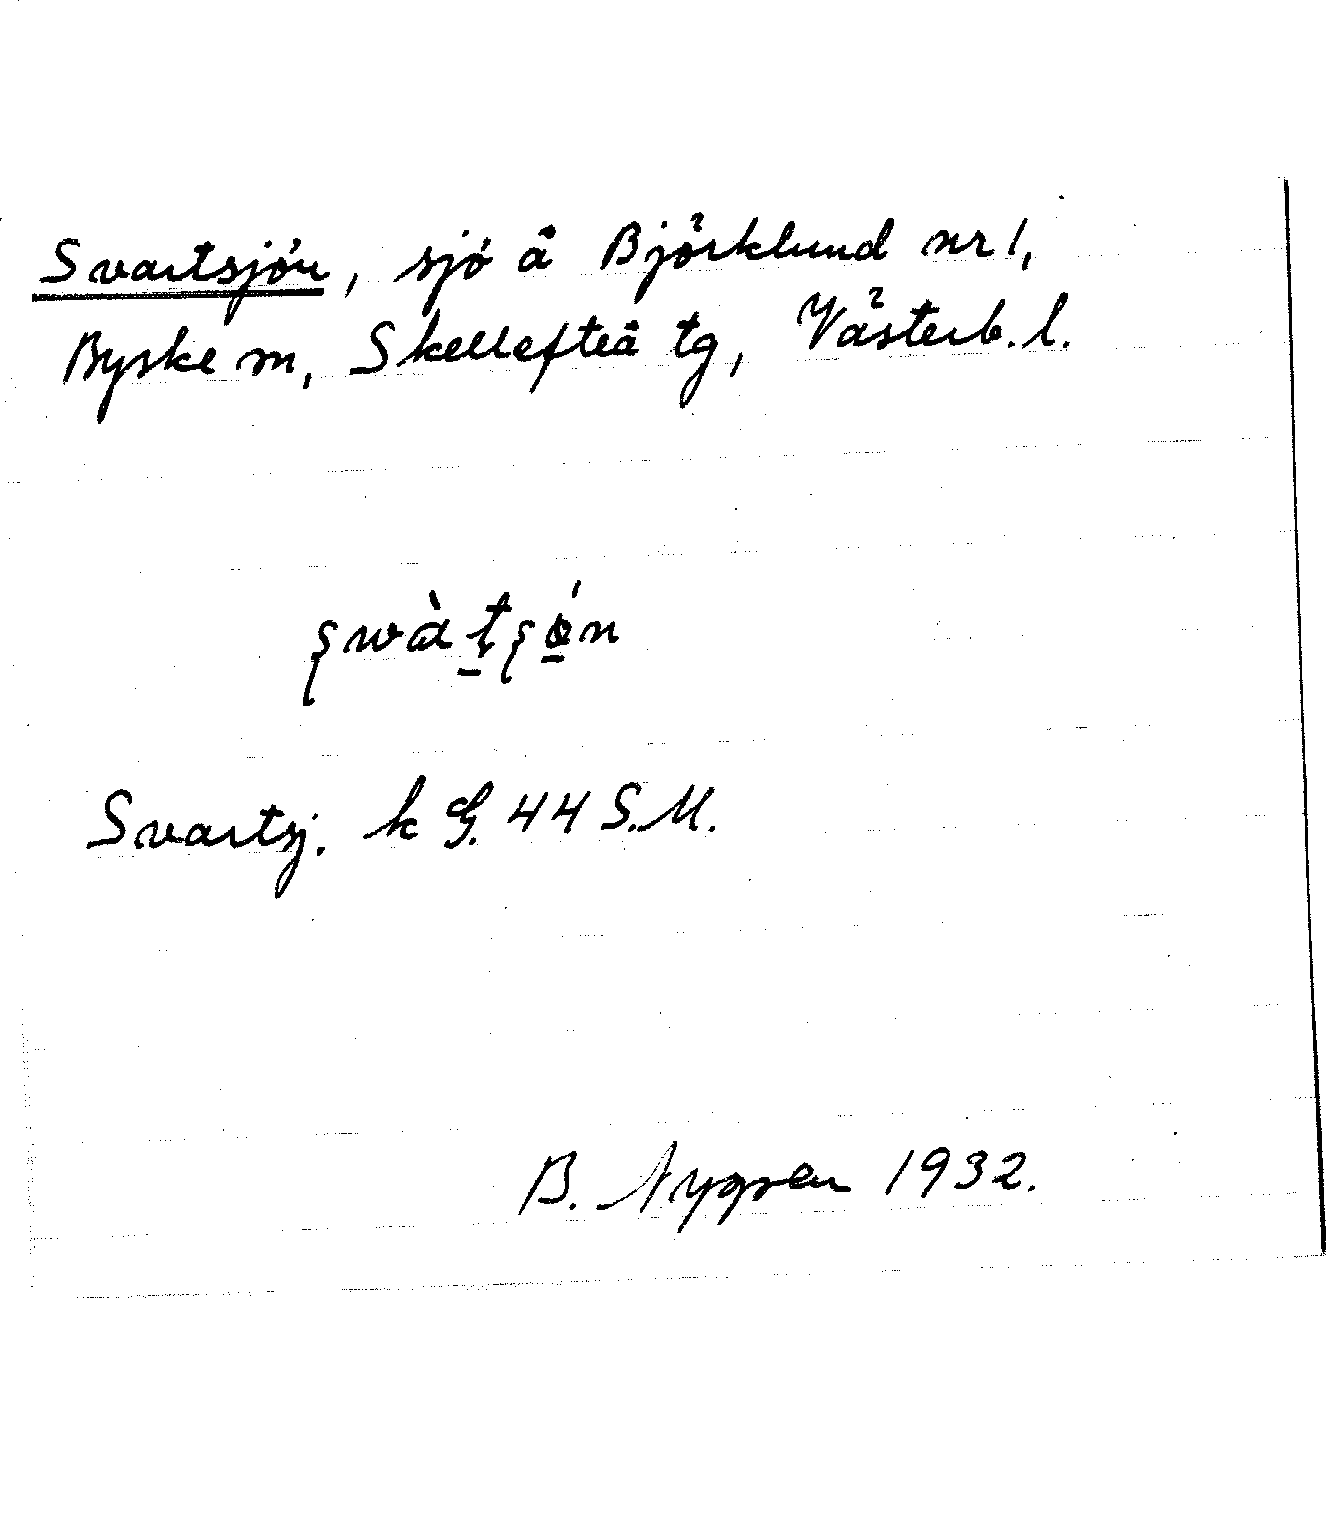 Svartsjön, sjö å Björklund nr 1,
Byske sn, Skellefteå tg, Västerb. l.
Svartsj. k G. 44 S.M.
B. Nygren 1932.